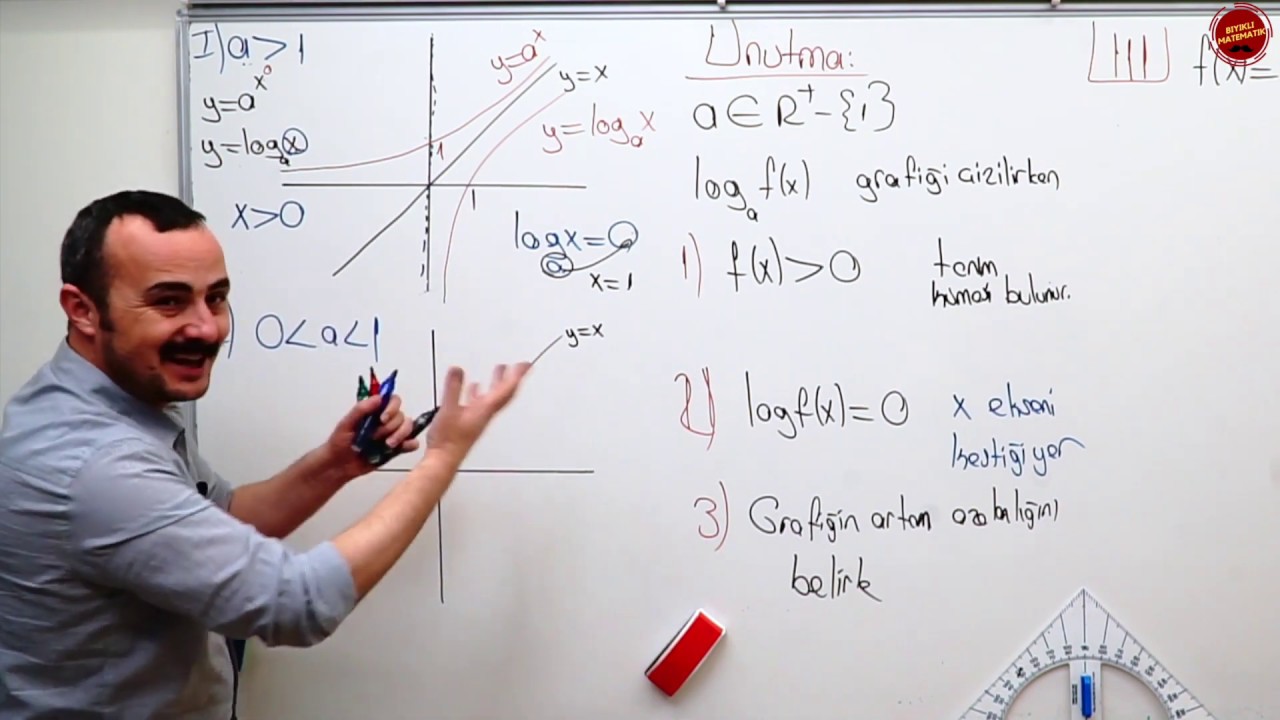 I) a>1
y=a^x
y=log_a x
x>0
y=a^x
y=x
y=log_a x
1
1
log_a x=0
x=1
) 0<a<1
y=x
Unutma:
a∈R⁺-{1}
log_a f(x) grafiği çizilirken
1) f(x)>0 tanım
kümesi bulunur.
2) log f(x)=0 x ekseni
kestiği yer
3) Grafiğin artan azalığını
belirle
III f(x)=
BIYIKLI
MATEMATİK